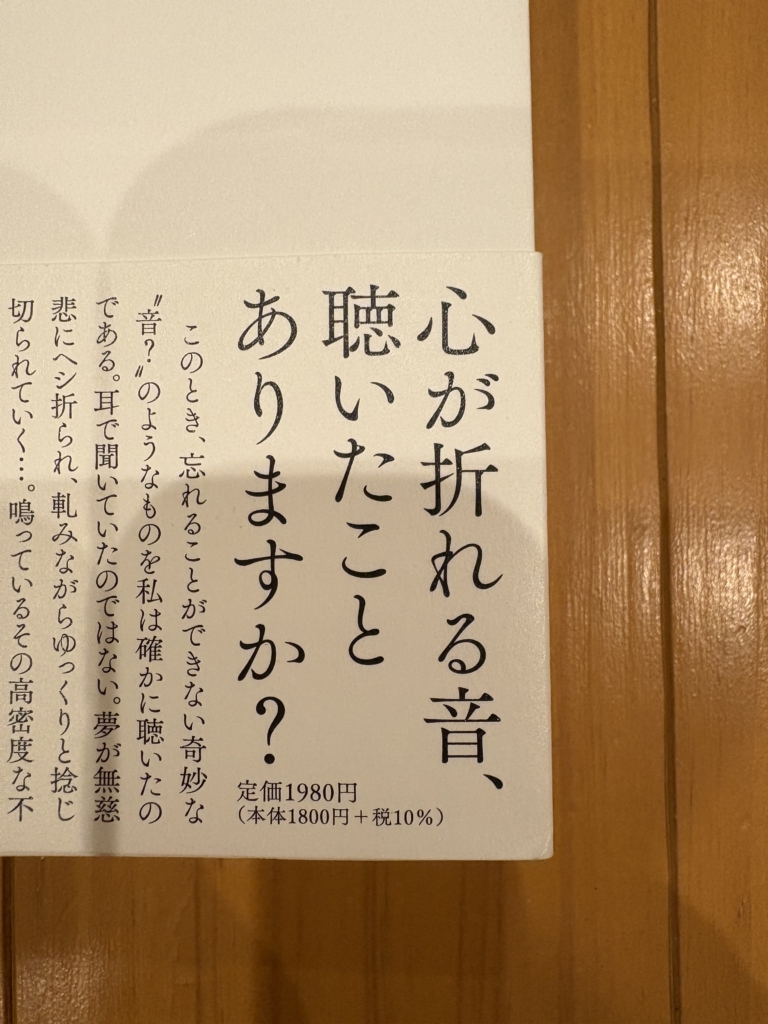 心が折れる音、
聴いたこと
ありますか?
このとき、忘れることができない奇妙な
〝音?〟のようなものを私は確かに聴いたの
である。耳で聞いていたのではない。夢が無慈
悲にヘシ折られ、軋みながらゆっくりと捻じ
切られていく…。鳴っているその高密度な不
定価1980円
(本体1800円+税10%)